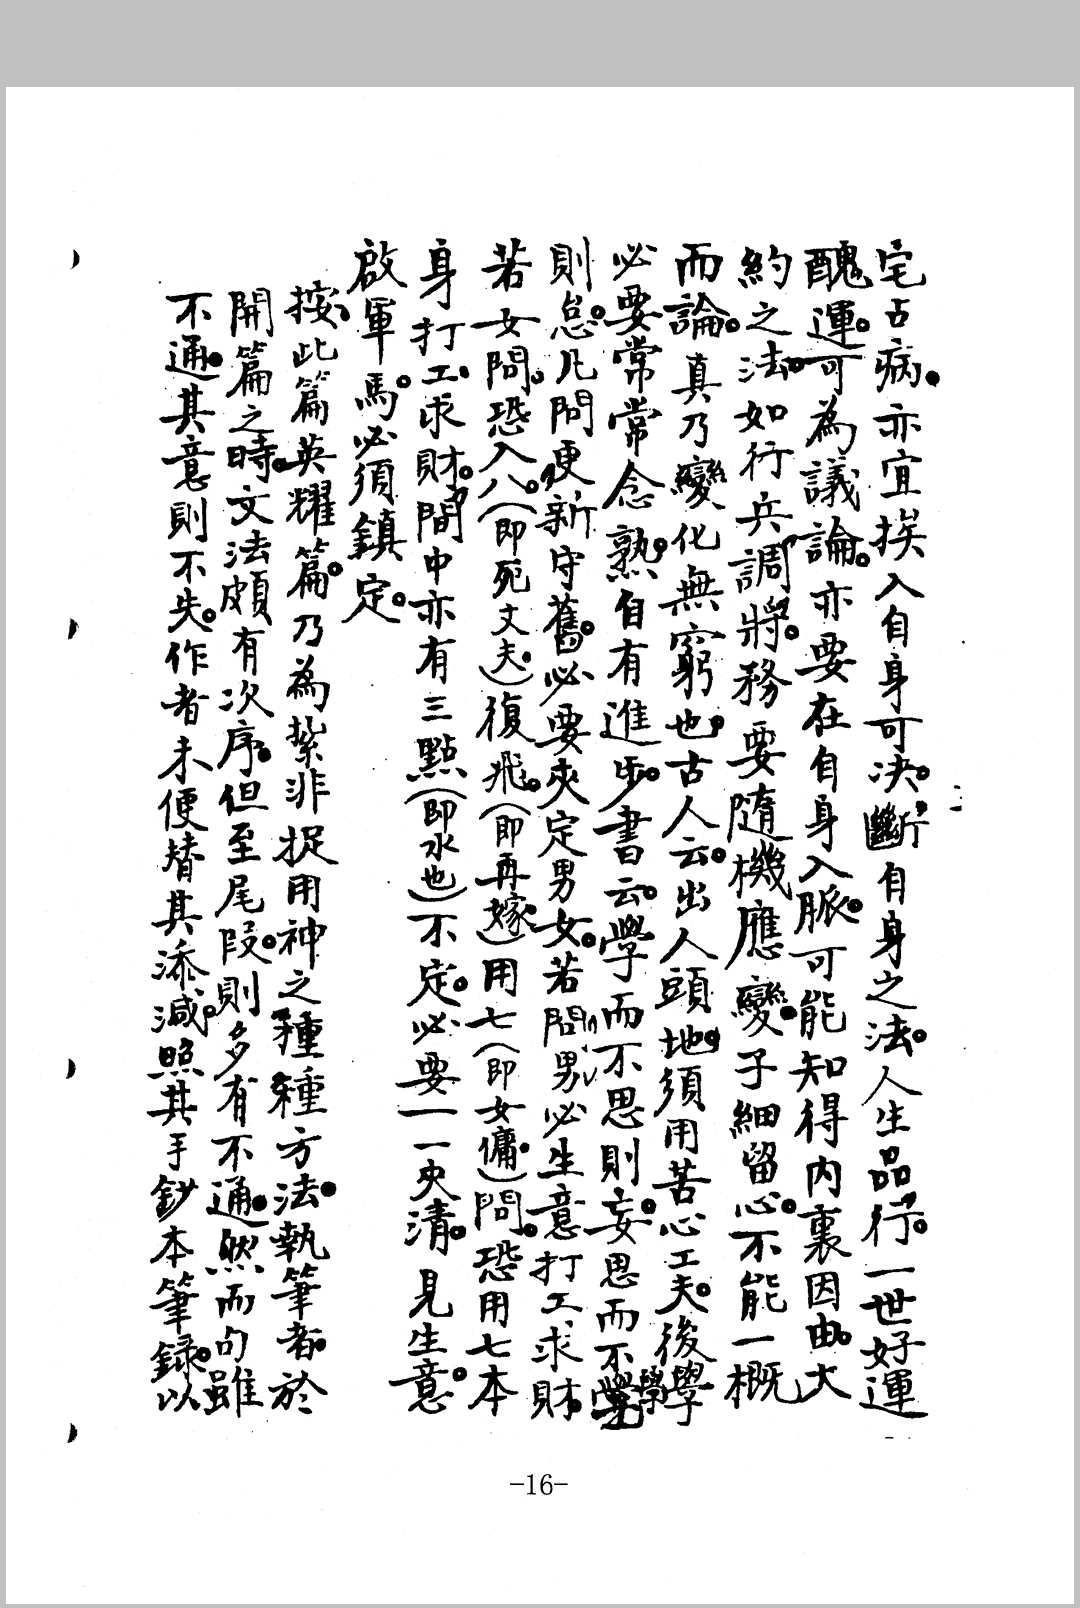 宅占病。亦宜挨入自身可决。斷自身之法。人生品行。一世好運
醜運。可為議論。亦要在自身入脈。可能知得内裏因由。大
約之法。如行兵調將。務要隨機應變。子細留心。不能一概
而論。真乃變化無窮也。古人云。出人頭地。須用苦心工夫。後學
必要常常念熟。自有進步。書云。學而不思則妄。思而不學
則怠。凡問更新守舊。必要夾定男女。若問男必生意打工求財
若女問。恐入八。(即死丈夫。)復飛。(即再嫁。)用七(即女傭。)問。恐用七本
身打工。求財。間中亦有三點(即水也)不定。必要一一夾清。見生意。
啟軍馬。必須鎮定。
按。此篇英耀篇。乃為紮非捉用神之種種方法。執筆者。於
開篇之時。文法頗有次序。但至尾段。則多有不通。然而句雖
不通。其意則不失。作者未便替其添減。照其手鈔本筆録。以
-16-